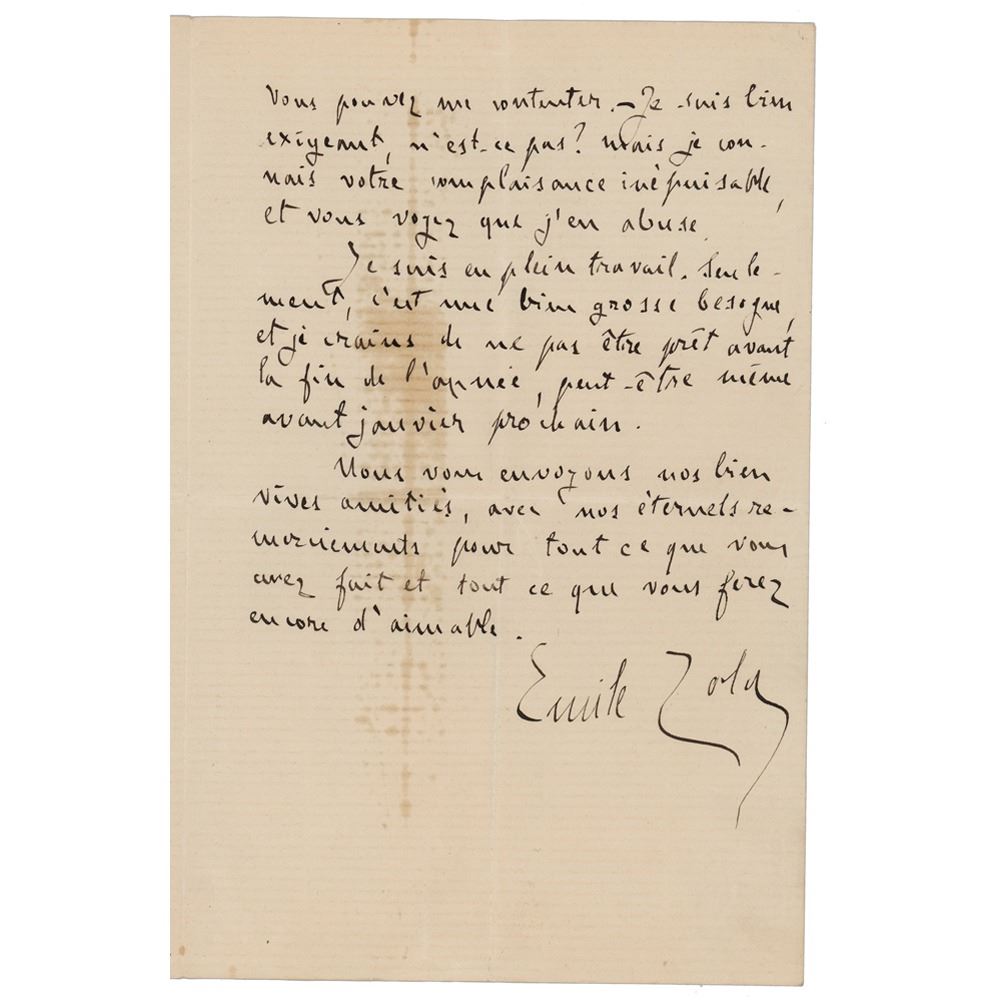 vous pouvez me contenter. – Je suis bien
exigeant, n'est-ce pas? mais je con-
nais votre complaisance inépuisable,
et vous voyez que j'en abuse.
Je suis en plein travail. Seule-
ment, c'est une bien grosse besogne,
et je crains de ne pas être prêt avant
la fin de l'année, peut-être même
avant janvier prochain.
Nous vous envoyons nos bien
vives amitiés, avec nos éternels re-
merciements pour tout ce que vous
avez fait et tout ce que vous ferez
encore d'aimable.
Emile Zola